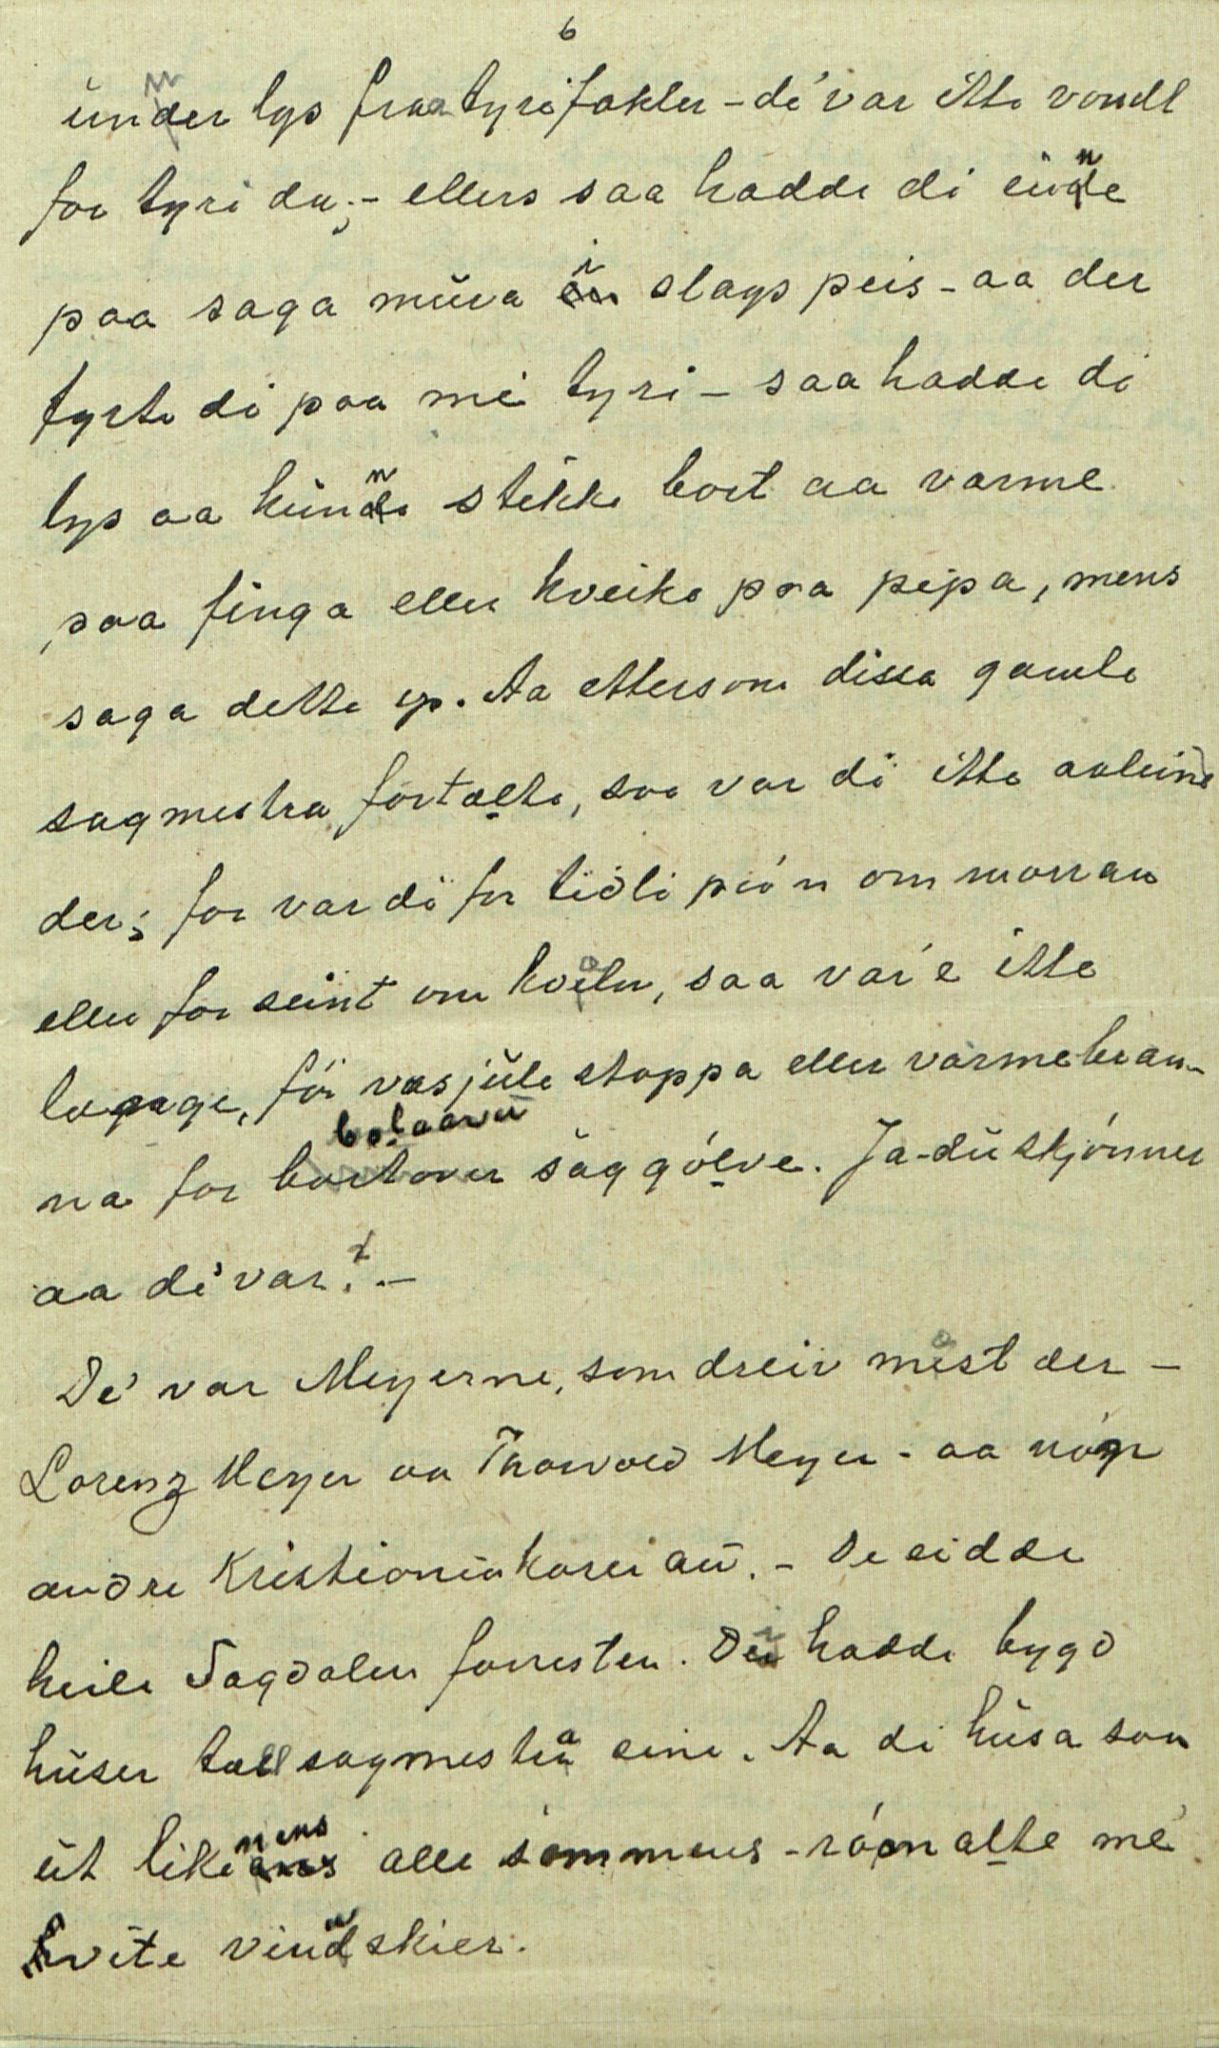 6
unner lys fraa tyrifakler - de' var itte vondt
for tyri du; - ellers saa hadde di inne
paa saga mura i slags peis - aa der
fyrte di paa me' tyri - saa hadde di
lys aa kunne stikke bort aa varme
paa finga eller kveike paa pipa, mens
saga dette sjo. Aa ettersom dissa gamle
sagmestra fortælte, saa var di itte aaleine
der; for var di for tidli om morran
eller for seint om kvæln, saa var'e itte
lagage, för vasjule stoppa eller varmebran-
na for bolaavu saggólve. Ja - du skjónner
aa de' var! -
De' var Meyerne, som dreiv mest der -
Lorenz Meyer aa Thorvald Meyer - aa nógr
andre Kristianiakarer au. - De eidde
heile Sagdalen forresten. Di hadde bygd
huser tæll sagmestra sine. Aa di husa saa
ut likens alle sammens - róumalte me'
kvite vinnskier.